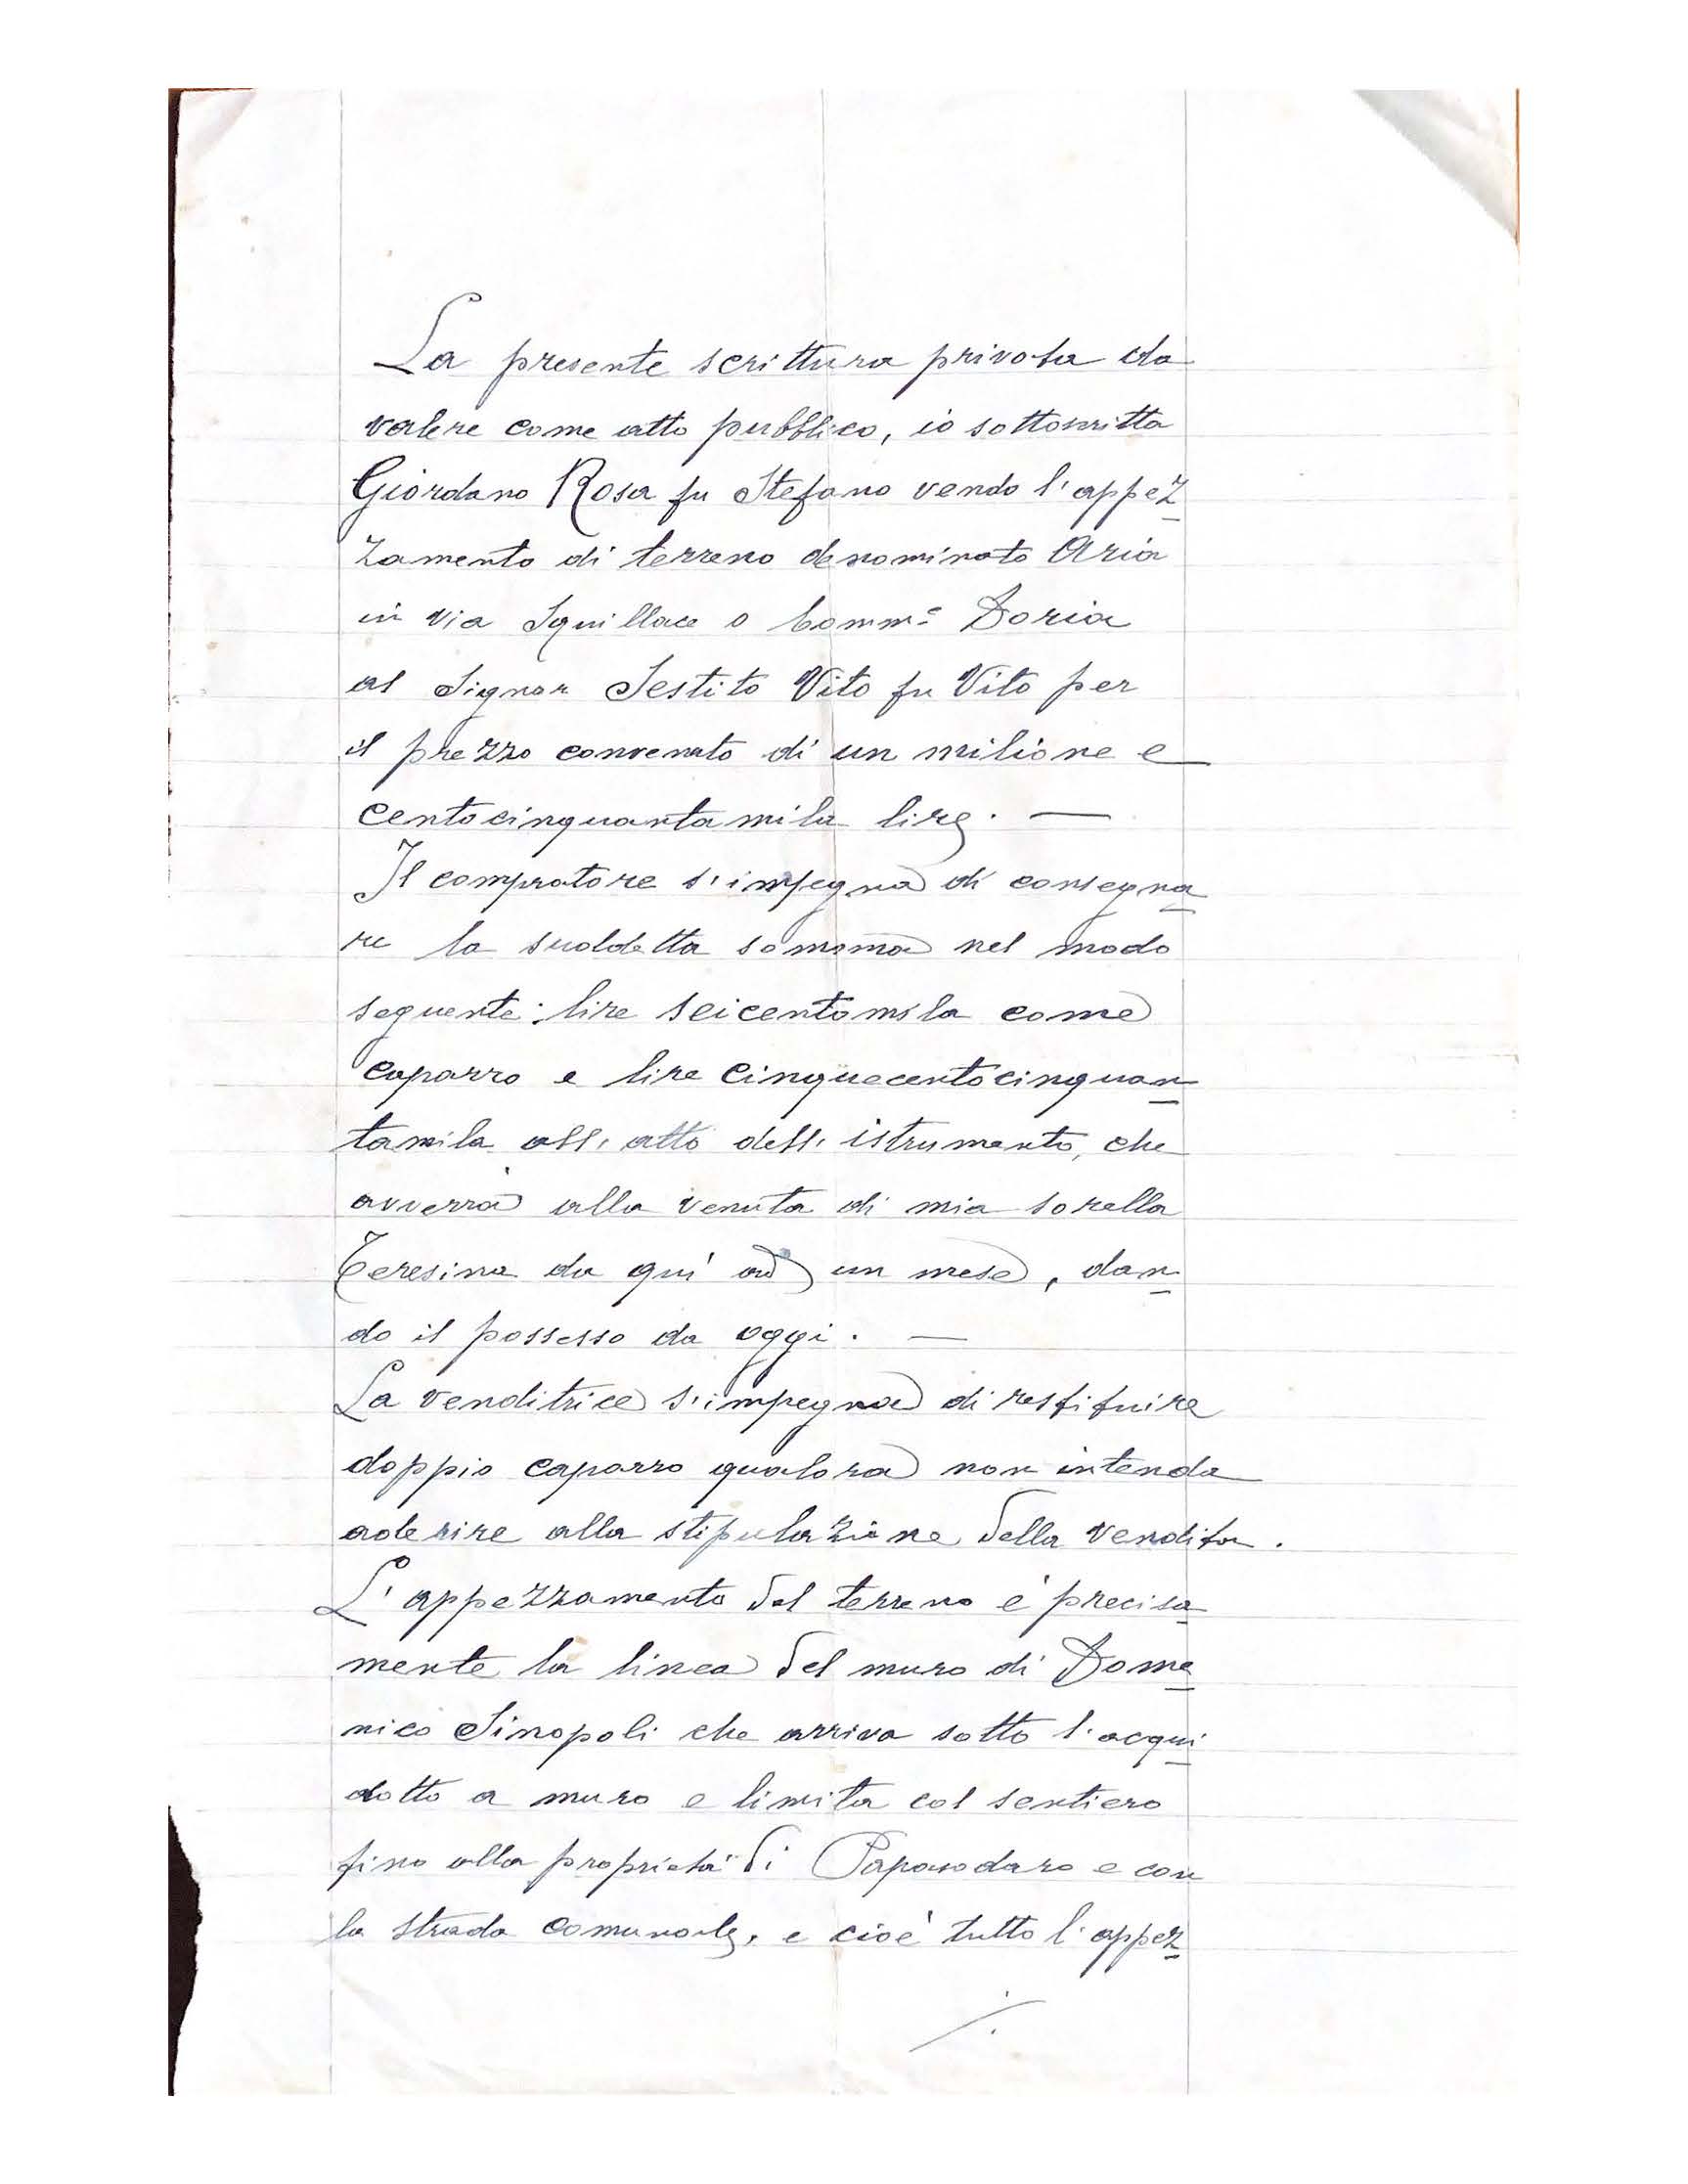 La presente scrittura privata da
valere come atto pubblico, io sottoscritta
Giordano Rosa fu Stefano vendo l'appez
zamento di terreno denominato Aria
in via Squillace o Comm.e Doria
al Signor Sestito Vito fu Vito per
il prezzo convenuto di un milione e
centocinquantamila lire. —
Il compratore s'impegna di consegna
re la suddetta somma nel modo
seguente: lire seicentomila come
caparro e lire cinquecentocinquan
tamila all'atto dell'istrumento, che
avverrà alla venuta di mia sorella
Teresina da qui' ad un mese, dan
do il possesso da oggi. —
La venditrice s'impegna di restituire
doppio caparro qualora non intenda
aderire alla stipulazione della vendita.
L'appezzamento del terreno è precisa
mente la linea del muro di Dome
nico Sinopoli che arriva sotto l'acqui
dotto a muro e limita col sentiero
fino alla proprietà di Paparodaro e con
la strada comunale, e cioè tutto l'appez
./.